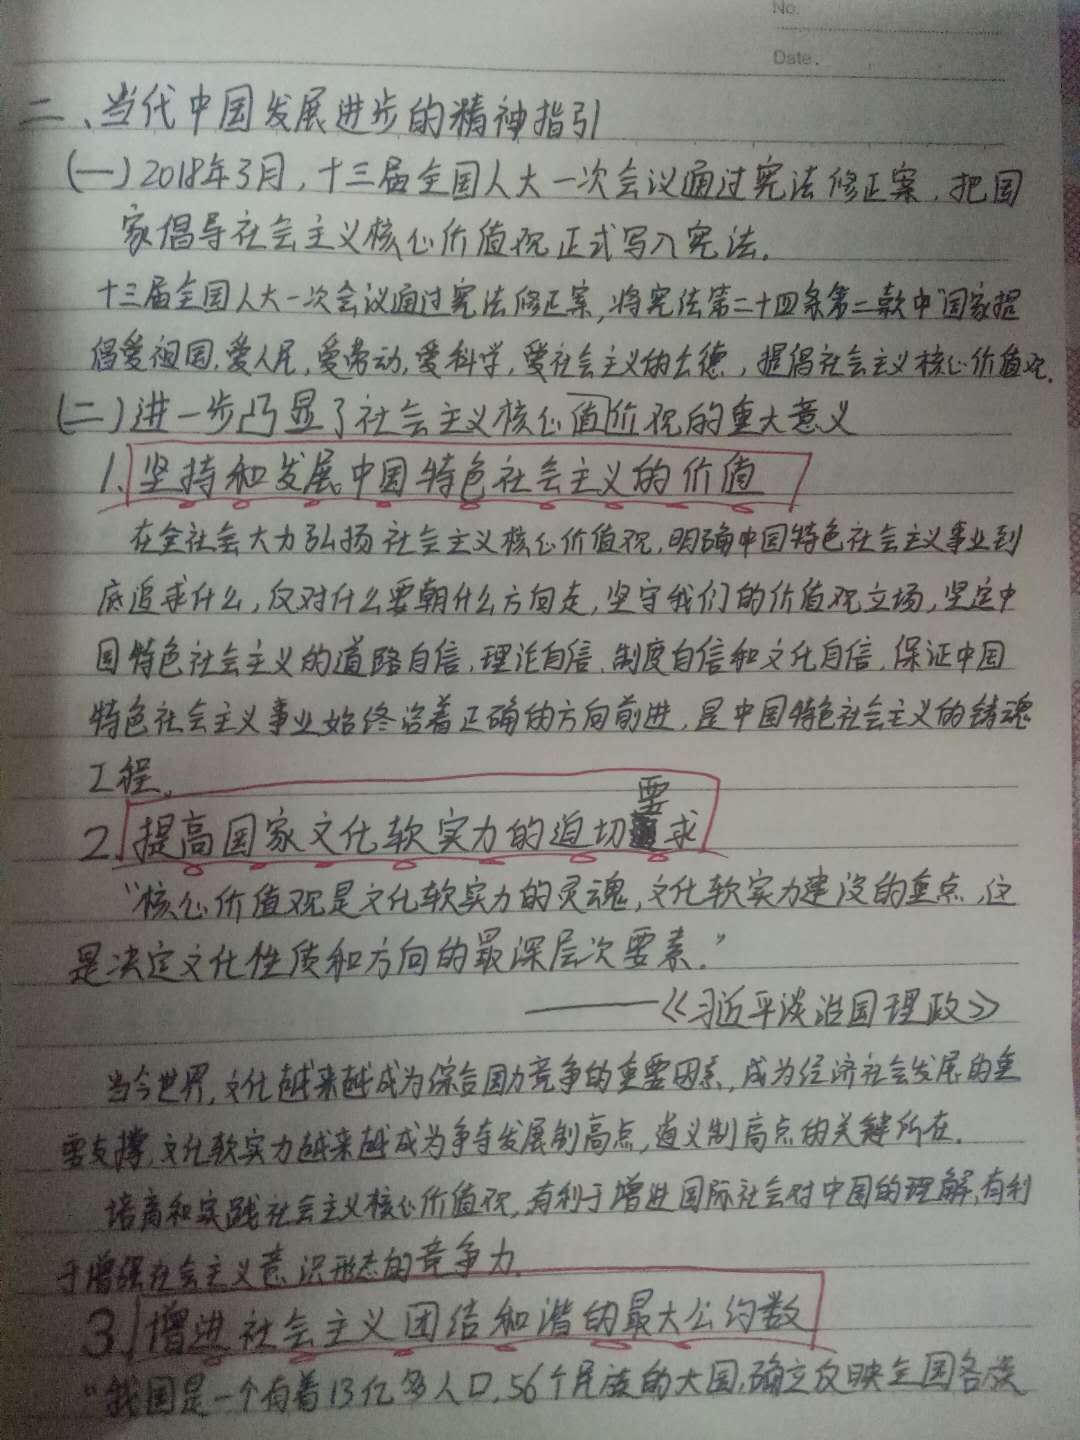 No.
Date.
二、当代中国发展进步的精神指引
(一)2018年3月,十三届全国人大一次会议通过宪法修正案,把国
家倡导社会主义核心价值观正式写入宪法.
十三届全国人大一次会议通过宪法修正案,将宪法第二十四条第二款中"国家提
倡爱祖国,爱人民,爱劳动,爱科学,爱社会主义的公德,提倡社会主义核心价值观.
(二)进一步凸显了社会主义核心值价观的重大意义
1.坚持和发展中国特色社会主义的价值
在全社会大力弘扬社会主义核心价值观,明确中国特色社会主义事业到
底追求什么,反对什么要朝什么方向走,坚守我们的价值观立场,坚定中
国特色社会主义的道路自信,理论自信,制度自信和文化自信,保证中国
特色社会主义事业始终沿着正确的方向前进,是中国特色社会主义的铸魂
工程.
2.提高国家文化软实力的迫切要求
"核心价值观是文化软实力的灵魂,文化软实力建设的重点,这
是决定文化性质和方向的最深层次要素."
——《习近平谈治国理政》
当今世界,文化越来越成为综合国力竞争的重要因素,成为经济社会发展的重
要支撑,文化软实力越来越成为争夺发展制高点,道义制高点的关键所在.
培育和实践社会主义核心价值观,有利于增进国际社会对中国的理解,有利
于增强社会主义意识形态的竞争力.
3.增进社会主义团结和谐的最大公约数
"我国是一个有着13亿多人口,56个民族的大国,确立反映全国各族